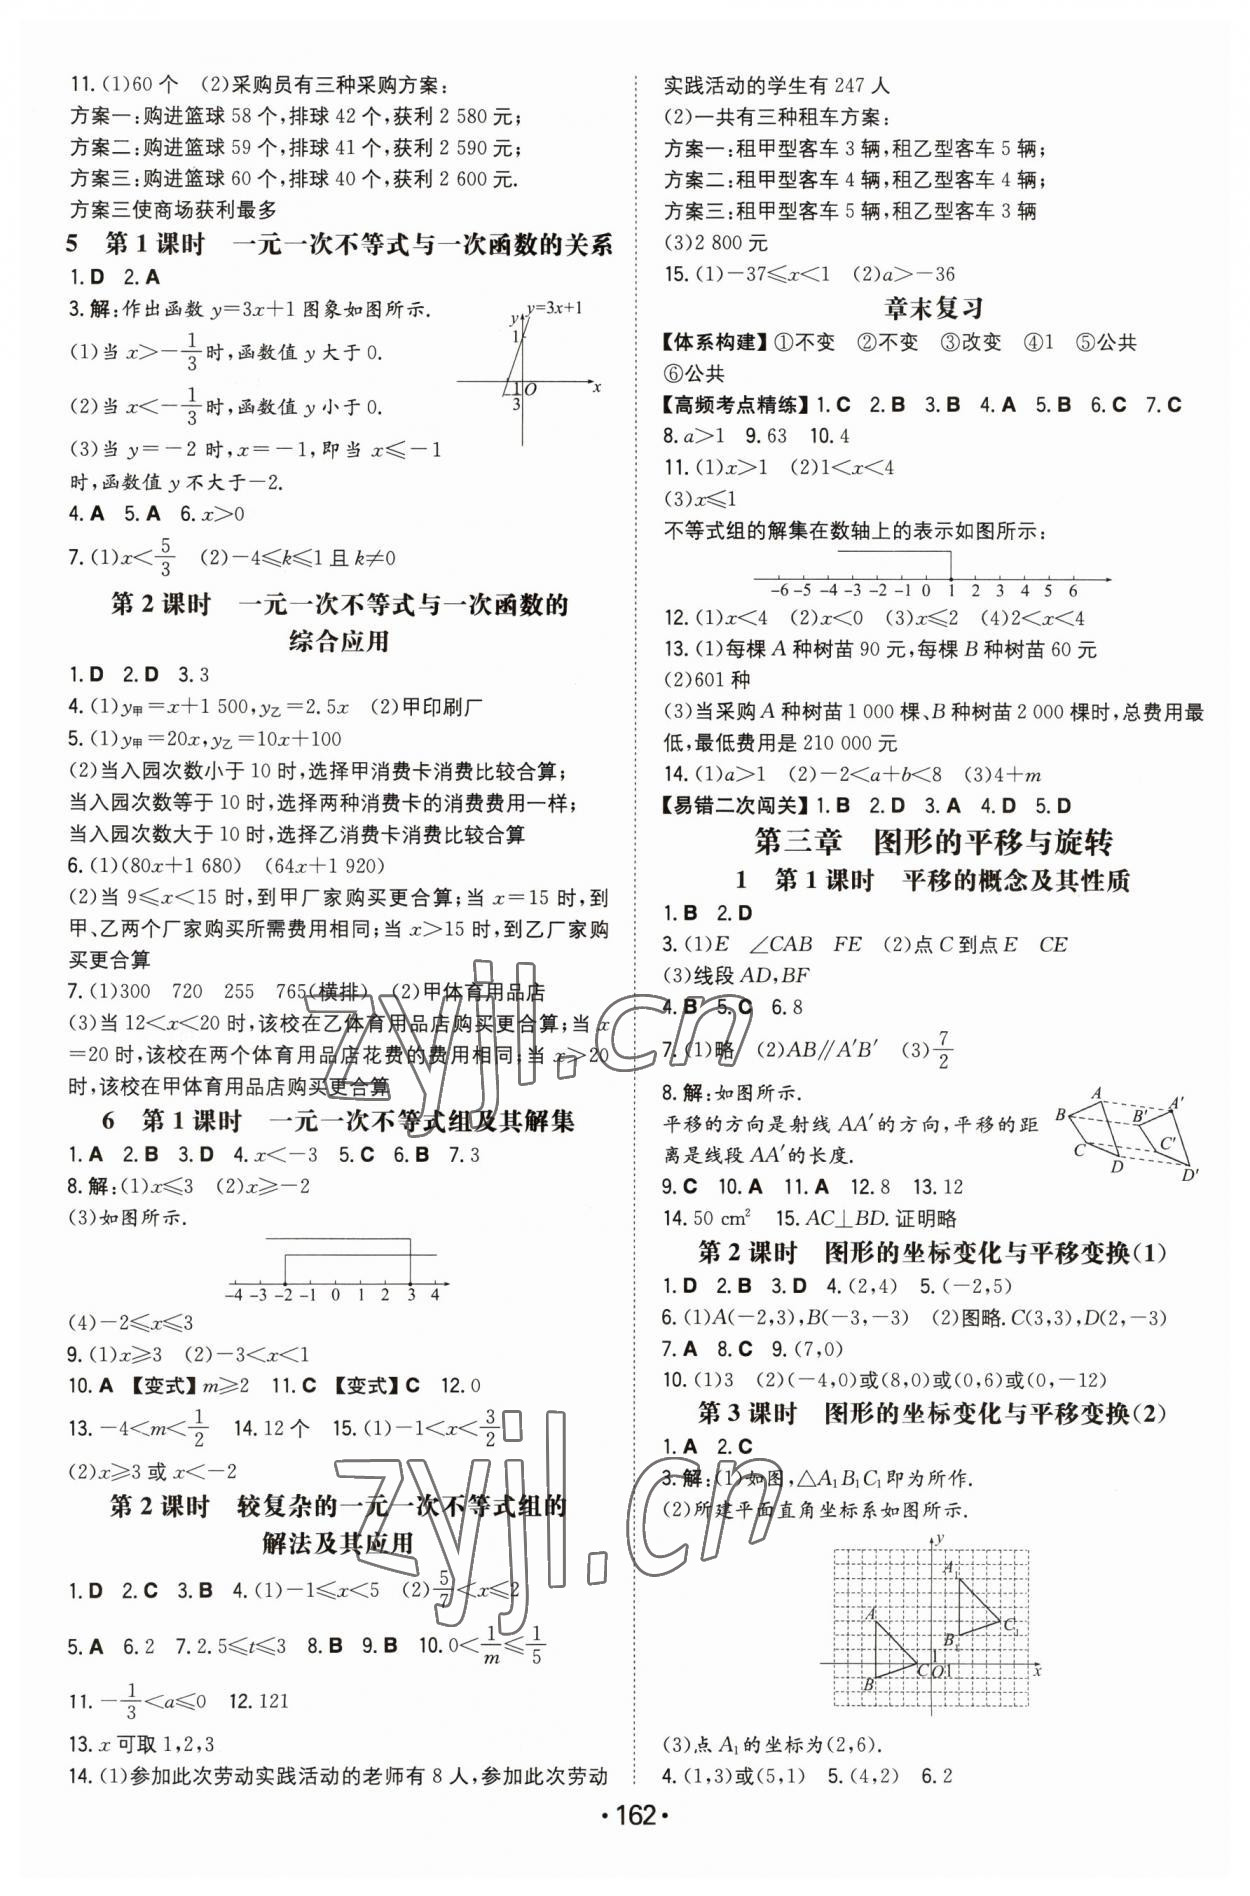 11. (1)60 个　(2)采购员有三种采购方案:
方案一:购进篮球 58 个,排球 42 个,获利 2 580 元;
方案二:购进篮球 59 个,排球 41 个,获利 2 590 元;
方案三:购进篮球 60 个,排球 40 个,获利 2 600 元.
方案三使商场获利最多
5　第 1 课时　一元一次不等式与一次函数的关系
1. D　2. A
3. 解:作出函数 y=3x+1 图象如图所示.
(1)当 x>-1/3 时,函数值 y 大于 0.
(2)当 x<-1/3 时,函数值 y 小于 0.
(3)当 y=-2 时,x=-1,即当 x≤-1
时,函数值 y 不大于-2.
y y=3x+1
1
-1/3 O x
4. A　5. A　6. x>0
7. (1)x<5/3　(2)-4≤k≤1 且 k≠0
第 2 课时　一元一次不等式与一次函数的
综合应用
1. D　2. D　3. 3
4. (1)y甲=x+1 500,y乙=2.5x　(2)甲印刷厂
5. (1)y甲=20x,y乙=10x+100
(2)当入园次数小于 10 时,选择甲消费卡消费比较合算;
当入园次数等于 10 时,选择两种消费卡的消费费用一样;
当入园次数大于 10 时,选择乙消费卡消费比较合算
6. (1)(80x+1 680)　(64x+1 920)
(2)当 9≤x<15 时,到甲厂家购买更合算;当 x=15 时,到
甲、乙两个厂家购买所需费用相同;当 x>15 时,到乙厂家购
买更合算
7. (1)300　720　255　765(横排)　(2)甲体育用品店
(3)当 12<x<20 时,该校在乙体育用品店购买更合算;当 x
=20 时,该校在两个体育用品店花费的费用相同;当 x>20
时,该校在甲体育用品店购买更合算
6　第 1 课时　一元一次不等式组及其解集
1. A　2. B　3. D　4. x<-3　5. C　6. B　7. 3
8. 解:(1)x≤3　(2)x≥-2
(3)如图所示.
-4 -3 -2 -1 0 1 2 3 4
(4)-2≤x≤3
9. (1)x≥3　(2)-3<x<1
10. A　【变式】m≥2　11. C　【变式】C　12. 0
13. -4<m<1/2　14. 12 个　15. (1)-1<x<3/2
(2)x≥3 或 x<-2
第 2 课时　较复杂的一元一次不等式组的
解法及其应用
1. D　2. C　3. B　4. (1)-1≤x<5　(2)5/7<x≤2
5. A　6. 2　7. 2.5≤t≤3　8. B　9. B　10. 0<1/m≤1/5
11. -1/3<a≤0　12. 121
13. x 可取 1,2,3
14. (1)参加此次劳动实践活动的老师有 8 人,参加此次劳动
实践活动的学生有 247 人
(2)一共有三种租车方案:
方案一:租甲型客车 3 辆,租乙型客车 5 辆;
方案二:租甲型客车 4 辆,租乙型客车 4 辆;
方案三:租甲型客车 5 辆,租乙型客车 3 辆
(3)2 800 元
15. (1)-37≤x<1　(2)a>-36
章末复习
【体系构建】①不变　②不变　③改变　④1　⑤公共
⑥公共
【高频考点精练】1. C　2. B　3. B　4. A　5. B　6. C　7. C
8. a>1　9. 63　10. 4
11. (1)x>1　(2)1<x<4
(3)x≤1
不等式组的解集在数轴上的表示如图所示:
-6 -5 -4 -3 -2 -1 0 1 2 3 4 5 6
12. (1)x<4　(2)x<0　(3)x≤2　(4)2<x<4
13. (1)每棵 A 种树苗 90 元,每棵 B 种树苗 60 元
(2)601 种
(3)当采购 A 种树苗 1 000 棵、B 种树苗 2 000 棵时,总费用最
低,最低费用是 210 000 元
14. (1)a>1　(2)-2<a+b<8　(3)4+m
【易错二次闯关】1. B　2. D　3. A　4. D　5. D
第三章　图形的平移与旋转
1　第 1 课时　平移的概念及其性质
1. B　2. D
3. (1)E　∠CAB　FE　(2)点 C 到点 E　CE
(3)线段 AD,BF
4. B　5. C　6. 8
7. (1)略　(2)AB∥A′B′　(3)7/2
8. 解:如图所示.
平移的方向是射线 AA′的方向,平移的距
离是线段 AA′的长度.
A A′ B B′ C C′ D D′
9. C　10. A　11. A　12. 8　13. 12
14. 50 cm²　15. AC⊥BD. 证明略
第 2 课时　图形的坐标变化与平移变换(1)
1. D　2. B　3. D　4. (2,4)　5. (-2,5)
6. (1)A(-2,3),B(-3,-3)　(2)图略. C(3,3),D(2,-3)
7. A　8. C　9. (7,0)
10. (1)3　(2)(-4,0)或(8,0)或(0,6)或(0,-12)
第 3 课时　图形的坐标变化与平移变换(2)
1. A　2. C
3. 解:(1)如图,△A₁B₁C₁即为所作.
(2)所建平面直角坐标系如图所示.
y
A₁
A C₁
B₁
C 1 O 1 x
B
(3)点 A₁的坐标为(2,6).
4. (1,3)或(5,1)　5. (4,2)　6. 2
·162·
zyjl.cn
zyjl.cn